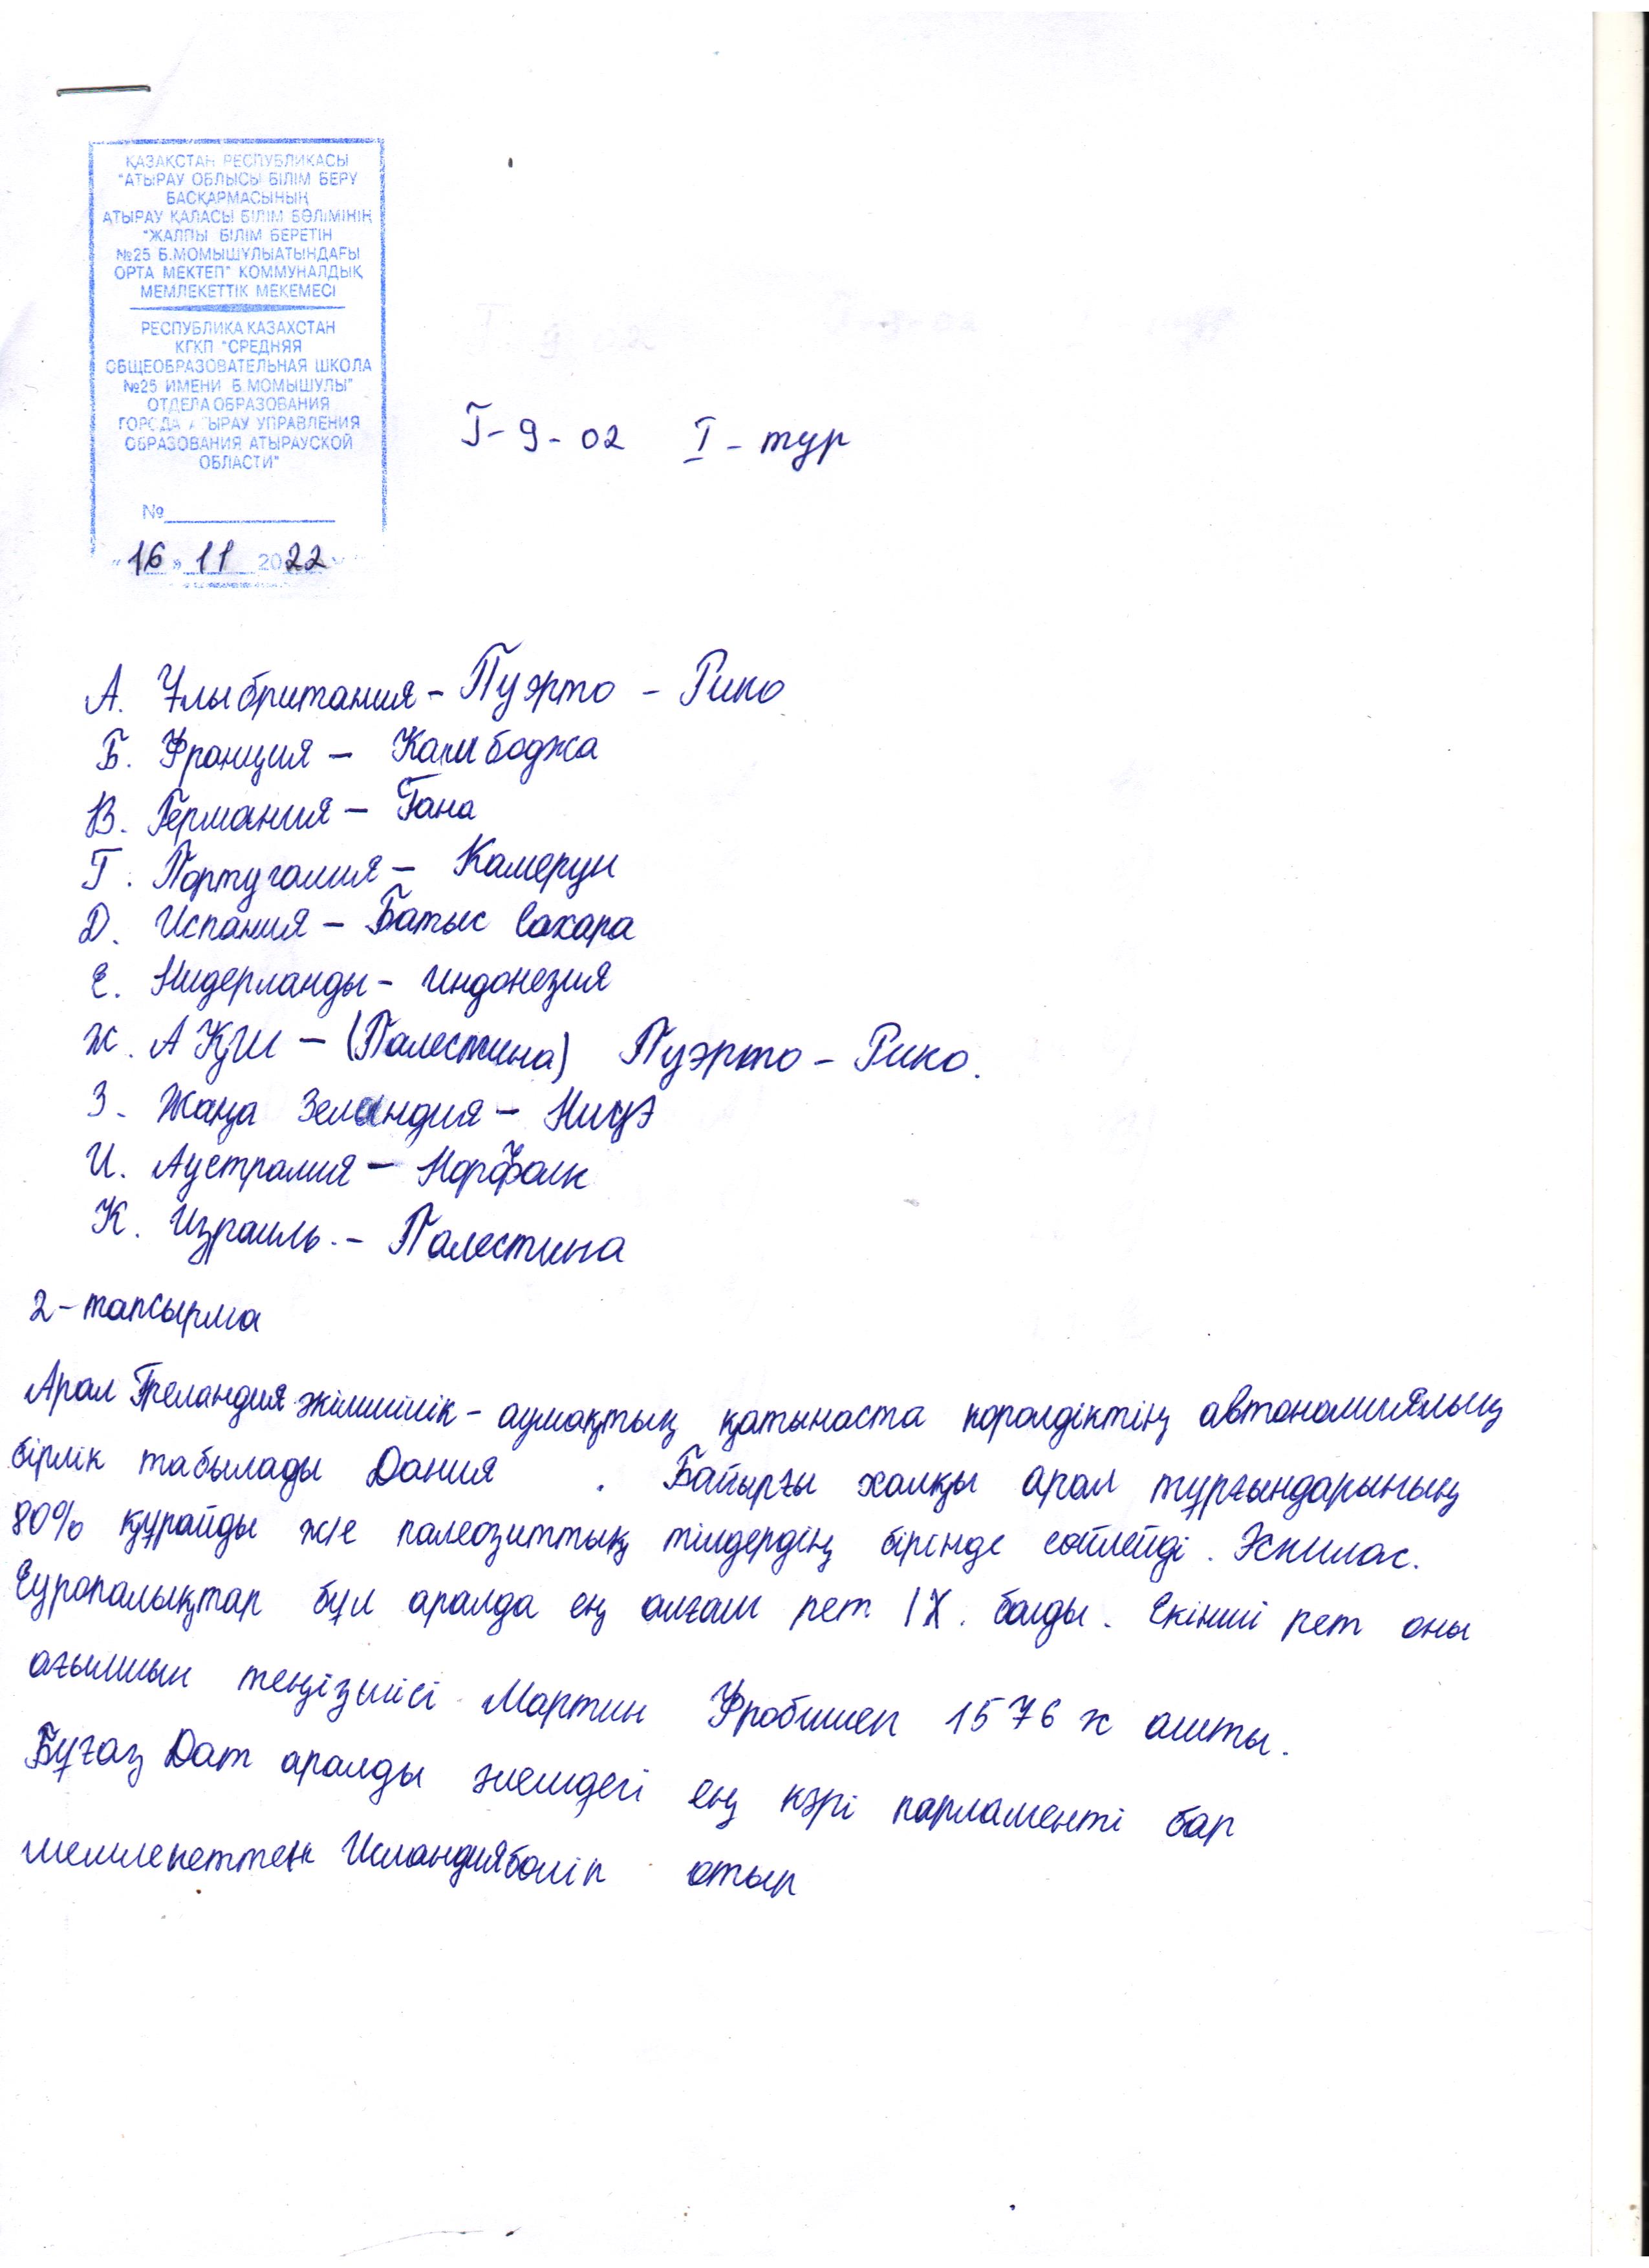 ҚАЗАҚСТАН РЕСПУБЛИКАСЫ
"АТЫРАУ ОБЛЫСЫ БІЛІМ БЕРУ
БАСҚАРМАСЫНЫҢ
АТЫРАУ ҚАЛАСЫ БІЛІМ БӨЛІМІНІҢ
"ЖАЛПЫ БІЛІМ БЕРЕТІН
№25 Б.МОМЫШҰЛЫАТЫНДАҒЫ
ОРТА МЕКТЕП" КОММУНАЛДЫҚ
МЕМЛЕКЕТТІК МЕКЕМЕСІ
РЕСПУБЛИКА КАЗАХСТАН
КГКП "СРЕДНЯЯ
ОБЩЕОБРАЗОВАТЕЛЬНАЯ ШКОЛА
№25 ИМЕНИ Б.МОМЫШУЛЫ"
ОТДЕЛА ОБРАЗОВАНИЯ
ГОРОДА АТЫРАУ УПРАВЛЕНИЯ
ОБРАЗОВАНИЯ АТЫРАУСКОЙ
ОБЛАСТИ"
№
"16" 11 2022
Г-9-02 I-тур
А. Ұлыбритания - Пуэрто - Рико
Б. Франция - Камбоджа
В. Германия - Гана
Г. Португалия - Камерун
Д. Испания - Батыс Сахара
Е. Нидерланды - Индонезия
Ж. АҚШ - (Палестина) Пуэрто - Рико.
З. Жаңа Зеландия - Ниуэ
И. Аустралия - Норфолк
К. Израиль. - Палестина
2-тапсырма
Арал әкімшілік - аумақтық қатынаста корольдіктің автономиялық
бірлік табылады Дания . Байырғы халқы арал тұрғындарының
80% құрайды және тілдердің бірінде сөйлейді.
Еуропалықтар бұл аралда ең алғаш рет IX. болды. Екінші рет оны
ағылшын теңізшісі Мартин 1576 ж ашты.
Бұғаз Дат аралды әлемдегі ең кәрі парламенті бар
мемлекеттен Исландия бөліп отыр